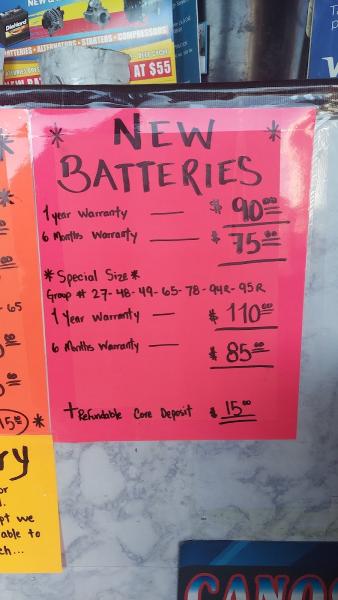 NEW
DieHard
BATTERIES • ALTERNATORS • STARTERS • COMPRESSORS
AT $55
* NEW *
BATTERIES
1 year Warranty — $ 90.00
6 Months Warranty — $ 75.00
* Special Size *
Group # 27-48-49-65-78-94R-95R
1 Year Warranty — $ 110.00
6 Months Warranty — $ 85.00
+ Refundable Core Deposit $ 15.00
- 65
*
ry
or
pt we
able to
ch...
CANOS